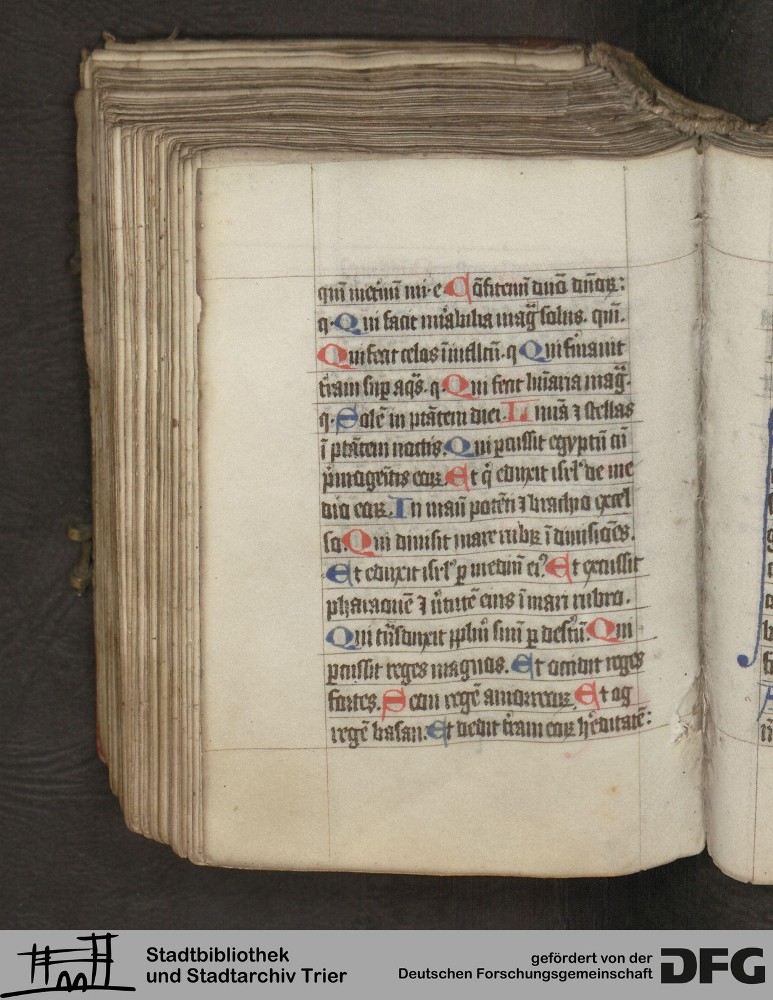 qm̄ metnū mi·e Cōfitemī dnō dn̄oꝝ:
q· Qui facit mirabilia mag̅ solus. qm̄.
Qui fecit celos ī intllcū. q Qui firmauit
tr̄am sup aq̅s. q. Qui fecit lūīaria mag̅.
q. Solē in ptātem diei. Lunā ⁊ stellas
ī ptātem noctis. Qui ꝑcussit egyptū cū
p̄mogenitis eoꝝ. Et q̇ eduxit isrl' de me
dio eoꝝ. In manū potēti ⁊ brachio excel
so. Qui diuisit mare rubꝝ ī diuisiōes.
Et eduxit isrl' ꝑ mediū ei9 Et excussit
pharaonē ⁊ u̇tutē eius ī mari rubro.
Qui tn̄sduxit pplm̄ suū ꝑ deſtū. Qui
ꝑcussit reges magnos. Et occidit reges
fortes. Seon regē amorreoꝝ. Et og
regē basan. Et dedit tr̄am eoꝝ hr̄editatē:
Stadtbibliothek
und Stadtarchiv Trier
gefördert von der
Deutschen Forschungsgemeinschaft DFG